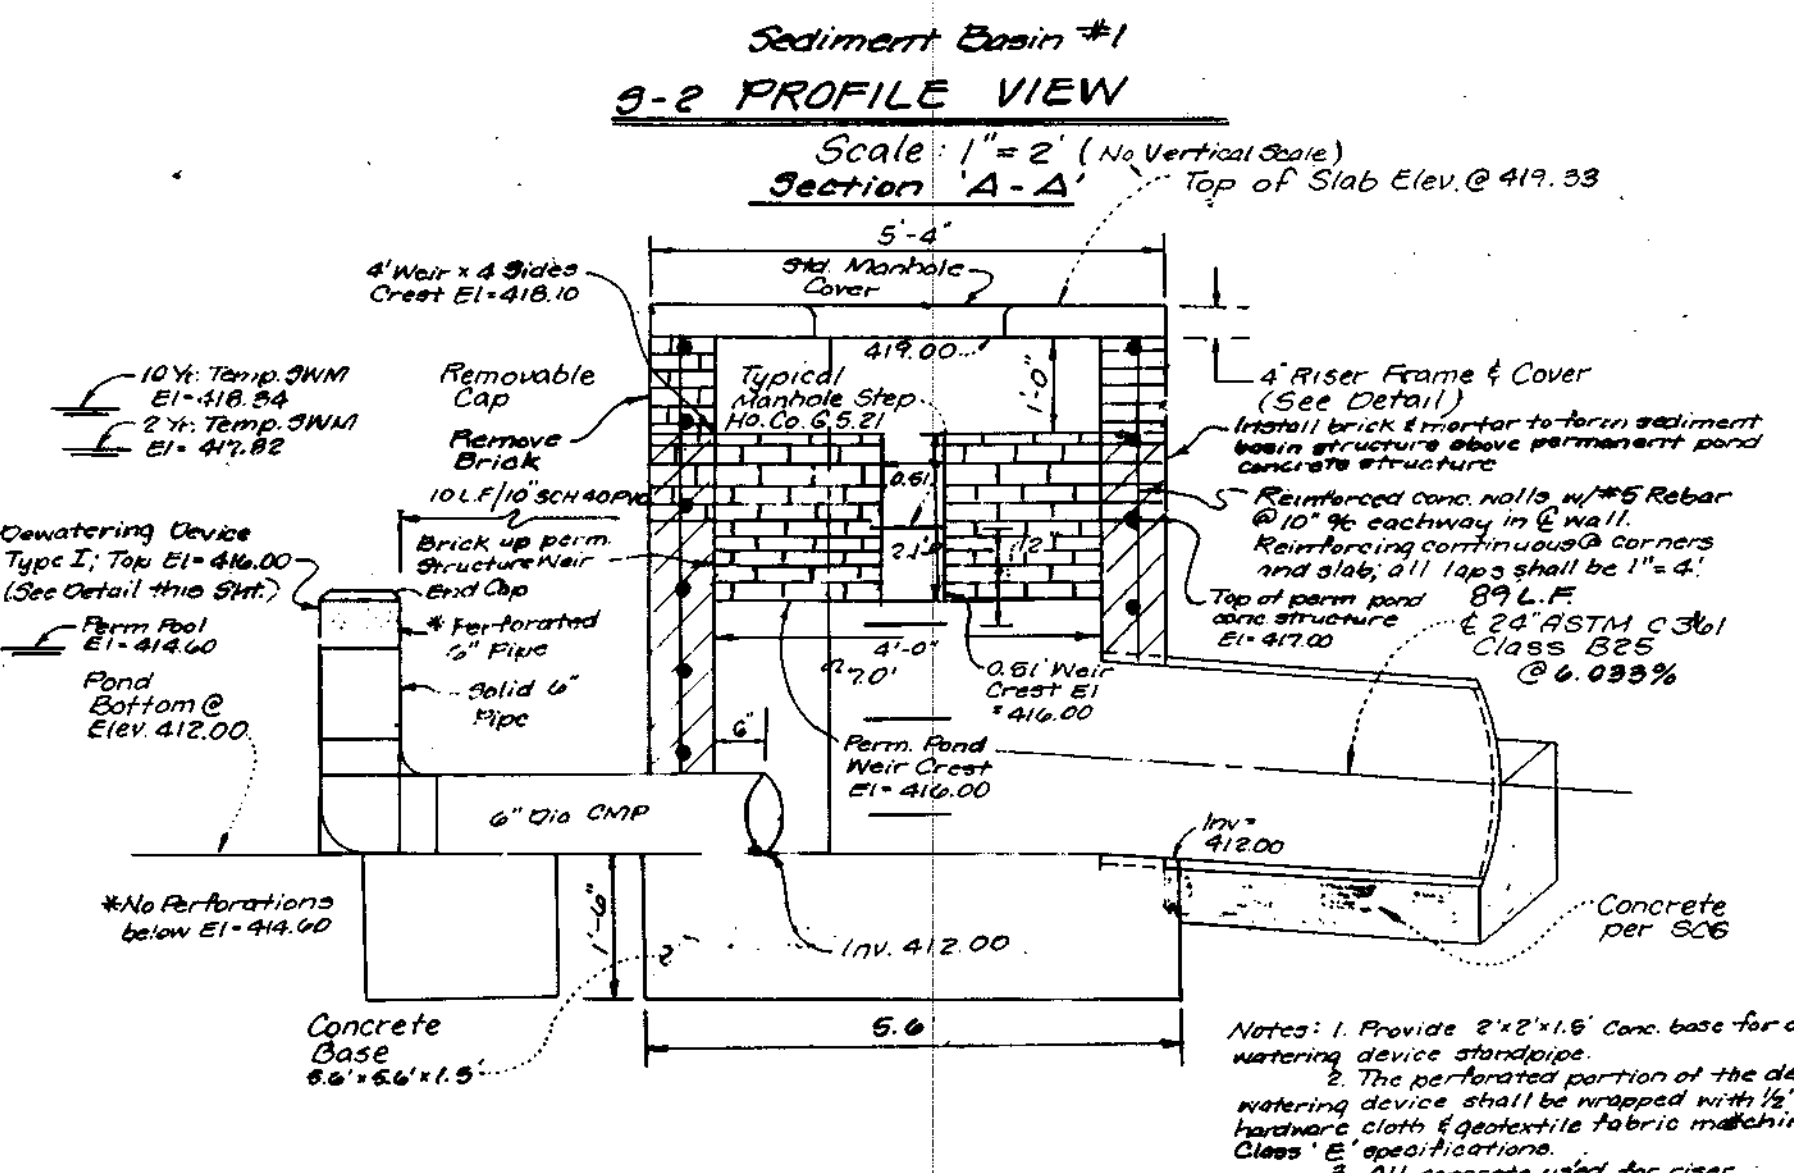 Sediment Basin #1
S-2 PROFILE VIEW
Scale: 1"=2' (No Vertical Scale)
Section 'A-A'
Top of Slab Elev. @ 419.33
5'-4"
Std. Manhole
Cover
4' Weir x 4 Sides
Crest El=418.10
419.00
1'-0"
10 Yr. Temp. SWM
El=418.34
2 Yr. Temp. SWM
El=417.82
Removable
Cap
Remove
Brick
Typical
Manhole Step
Ho. Co. G 5.21
4" Riser Frame & Cover
(See Detail)
Install brick & mortar to form sediment
basin structure above permanent pond
concrete structure
10 L.F./10" SCH 40 PVC
0.51
Reinforced conc. walls w/#5 Rebar
@ 10" % eachway in ℄ wall.
Reinforcing continuous @ corners
and slab; all laps shall be 1"=4'.
Dewatering Device
Type I; Top El=416.00
(See Detail this Sht.)
Brick up perm.
Structure Weir
End Cap
2.1'
* Perforated
6" Pipe
Solid 6"
Pipe
Perm Pool
El=414.60
Pond
Bottom @
Elev. 412.00
Top of perm pond
conc. structure
El=417.00
89 L.F.
℄ 24" ASTM C 361
Class B25
@ 6.033%
4'-0"
7.0'
0.51' Weir
Crest El
=416.00
6"
Perm. Pond
Weir Crest
El=416.00
6" Dia CMP
Inv=
412.00
*No Perforations
below El=414.60
1'-6"
Inv. 412.00
Concrete
per SC6
Concrete
Base
5.6'x5.6'x1.5'
5.6
Notes: 1. Provide 2'x2'x1.5' Conc. base for
watering device standpipe.
2. The perforated portion of the de
watering device shall be wrapped with ½"
hardware cloth & geotextile fabric matchin
Class 'E' specifications.
3. All concrete used for riser